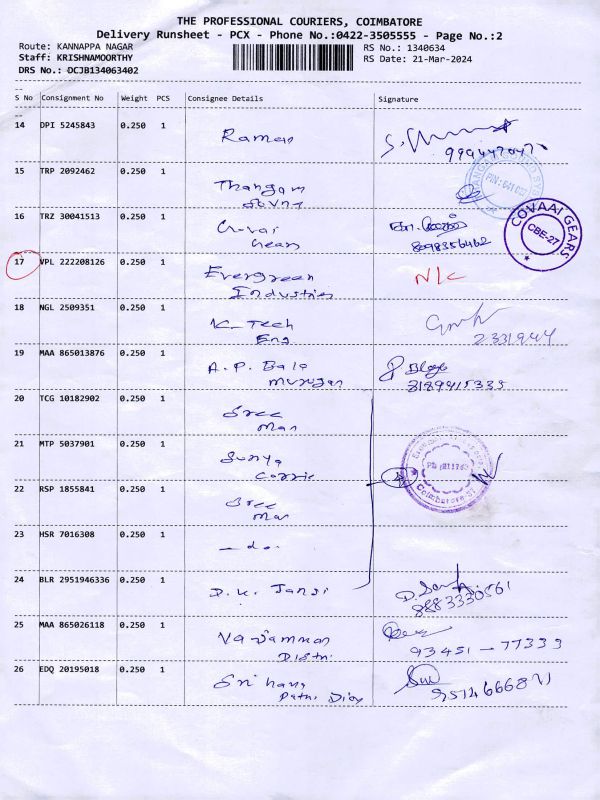 THE PROFESSIONAL COURIERS, COIMBATORE
Delivery Runsheet - PCX - Phone No.:0422-3505555 - Page No.:2
Route: KANNAPPA NAGAR RS No.: 1340634
Staff: KRISHNAMOORTHY RS Date: 21-Mar-2024
DRS No.: DCJB134063402
S No Consignment No Weight PCS Consignee Details Signature
14 DPI 5245843 0.250 1 Raman
15 TRP 2092462 0.250 1 Thangam
16 TRZ 30041513 0.250 1 Covai
Gears 8098356462
COVAAI GEARS
CBE-27
17 VPL 222208126 0.250 1 Evergreen N/C
Industries
18 NGL 2509351 0.250 1 K-Tech
Eng 2331944
19 MAA 865013876 0.250 1 A.P. Bala
Murugan 8189915335
20 TCG 10182902 0.250 1 Sree
Man
21 MTP 5037901 0.250 1 Surya
22 RSP 1855841 0.250 1 Sree
Man
Coimbatore
23 HSR 7016308 0.250 1 - do -
24 BLR 2951946336 0.250 1 D.K. Jansi
8883330561
25 MAA 865026118 0.250 1
Distri 93451-77333
26 EDQ 20195018 0.250 1 Sri hari